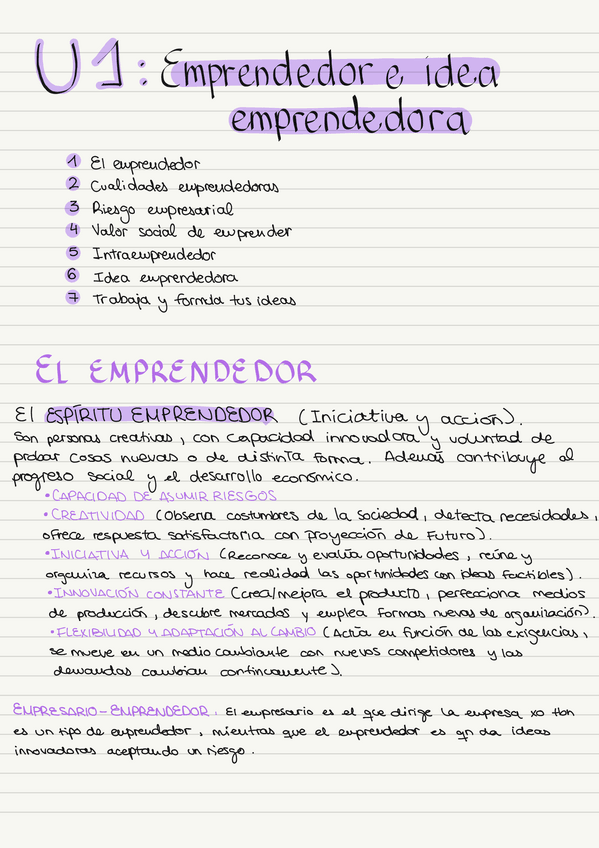 U1: Emprendedor e idea
emprendedora
1 El emprendedor
2 Cualidades emprendedoras
3 Riesgo empresarial
4 Valor social de emprender
5 Intraemprendedor
6 Idea emprendedora
7 Trabaja y formula tus ideas
EL EMPRENDEDOR
El ESPÍRITU EMPRENDEDOR (Iniciativa y acción).
Son personas creativas, con capacidad innovadora y voluntad de
probar cosas nuevas o de distinta forma. Además contribuye al
progreso social y el desarrollo económico.
• CAPACIDAD DE ASUMIR RIESGOS
• CREATIVIDAD (Observa costumbres de la sociedad, detecta necesidades,
ofrece respuesta satisfactoria con proyección de futuro).
• INICIATIVA Y ACCIÓN (Reconoce y evalúa oportunidades, reúne y
organiza recursos y hace realidad las oportunidades con ideas factibles).
• INNOVACIÓN CONSTANTE (crea/mejora el producto, perfecciona medios
de producción, descubre mercados y emplea formas nuevas de organización).
• FLEXIBILIDAD Y ADAPTACIÓN AL CAMBIO (Actúa en función de las exigencias,
se mueve en un medio cambiante con nuevos competidores y las
demandas cambian continuamente).
EMPRESARIO-EMPRENDEDOR. El empresario es el que dirige la empresa xo tbn
es un tipo de emprendedor, mientras que el emprendedor es qn da ideas
innovadoras aceptando un riesgo.